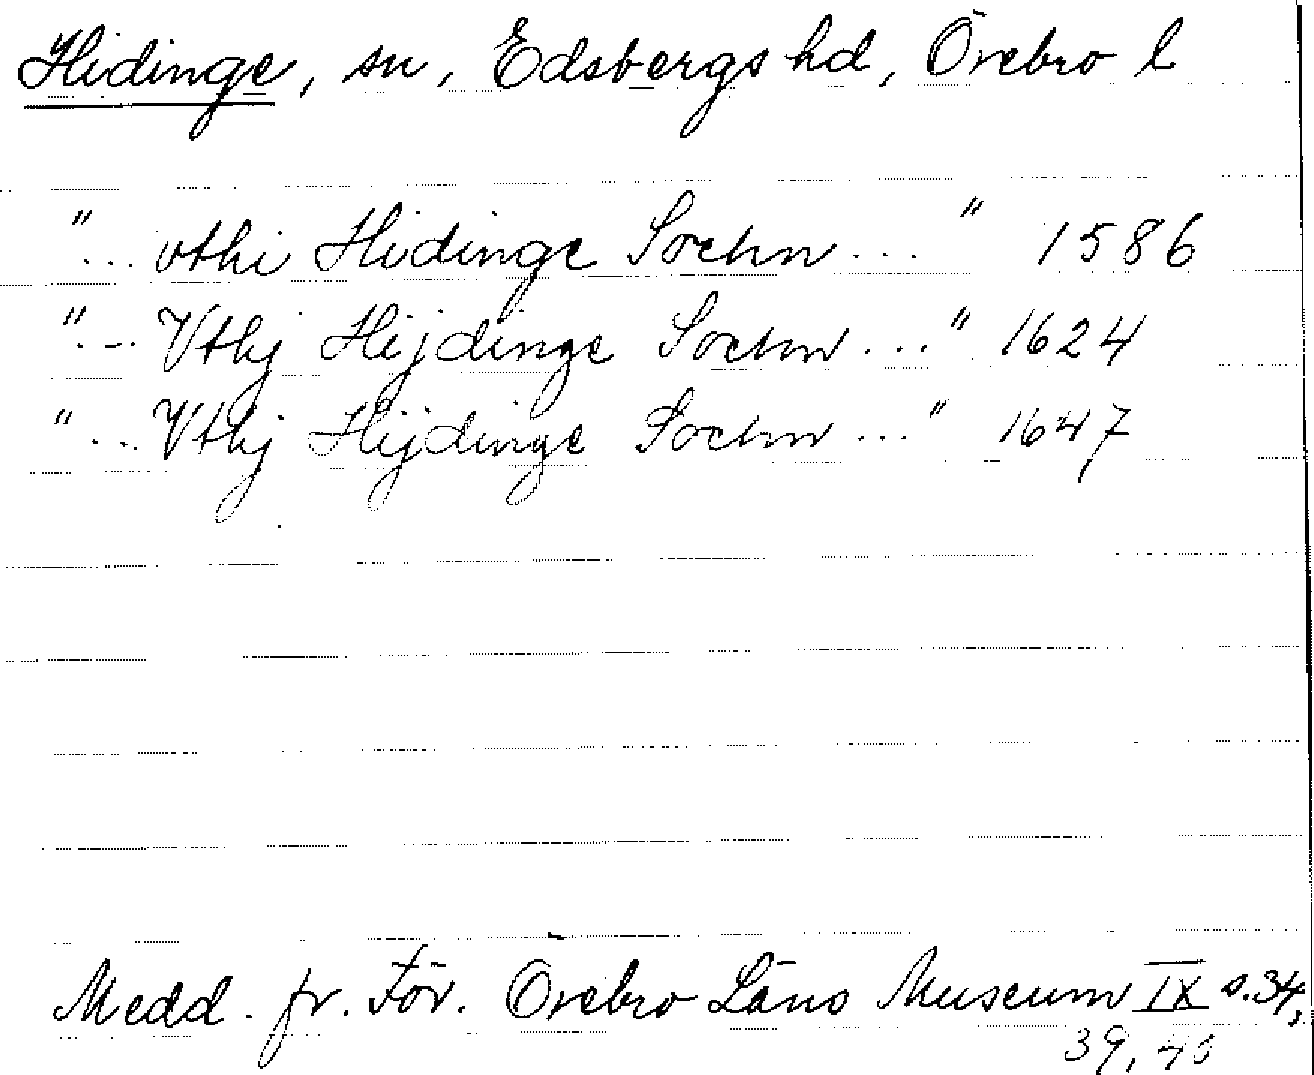 Hidinge, sn, Edsbergs hd, Örebro l
"... vthi Hidinge Sochn ..." 1586
"... Vthj Hijdinge Sochn ..." 1624
"... Vthj Hijdinge Sochn ..." 1647
Medd. fr. För. Örebro Läns Museum IX s. 34,
39, 40